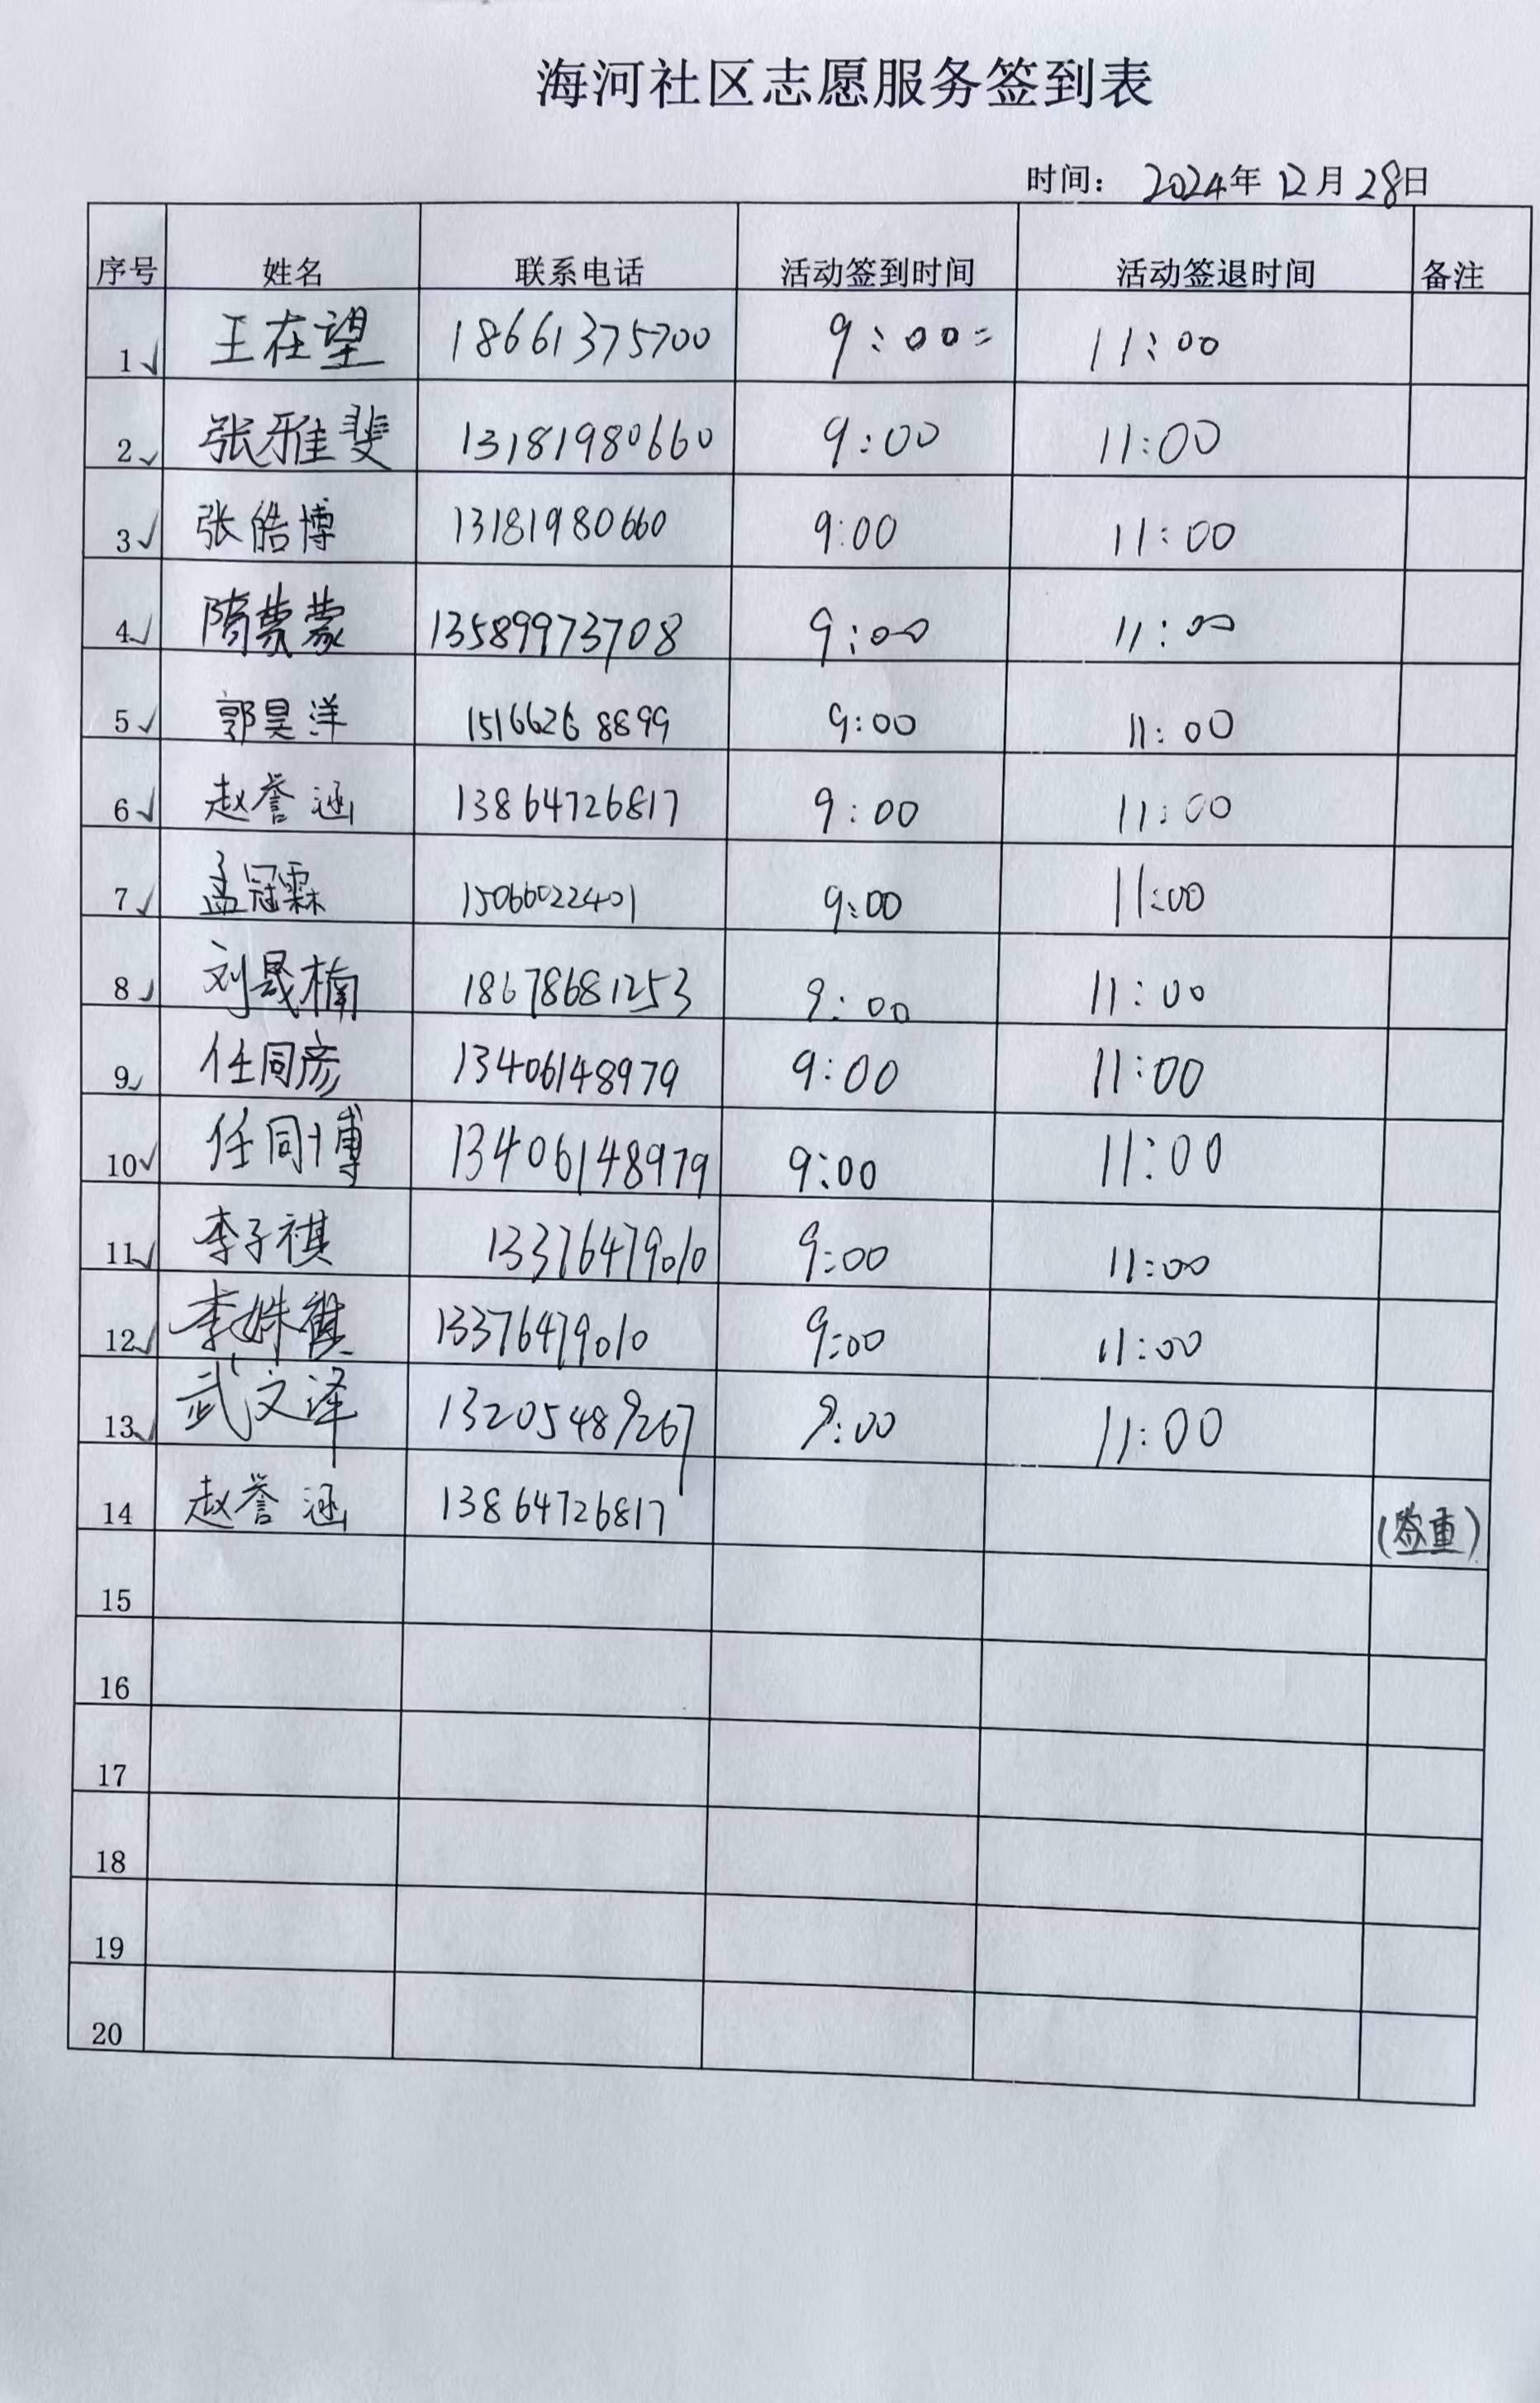 海河社区志愿服务签到表
时间： 2024年 12月 28日
序号 姓名 联系电话 活动签到时间 活动签退时间 备注
1✓ 王在望 18661375700 9:00 11:00
2✓ 张雅斐 13181980660 9:00 11:00
3✓ 张皓博 13181980660 9:00 11:00
4✓ 隋蒙蒙 13589973708 9:00 11:00
5✓ 郭昊洋 15166268899 9:00 11:00
6✓ 赵誉涵 13864726817 9:00 11:00
7✓ 孟冠霖 15066022401 9:00 11:00
8✓ 刘晟楠 18678681253 9:00 11:00
9✓ 任同彦 13406148979 9:00 11:00
10✓ 任同博 13406148979 9:00 11:00
11✓ 李子祺 13376479010 9:00 11:00
12✓ 李姝 13376479010 9:00 11:00
13✓ 武文泽 13205489267 9:00 11:00
14 赵誉涵 13864726817 (签重)
15
16
17
18
19
20